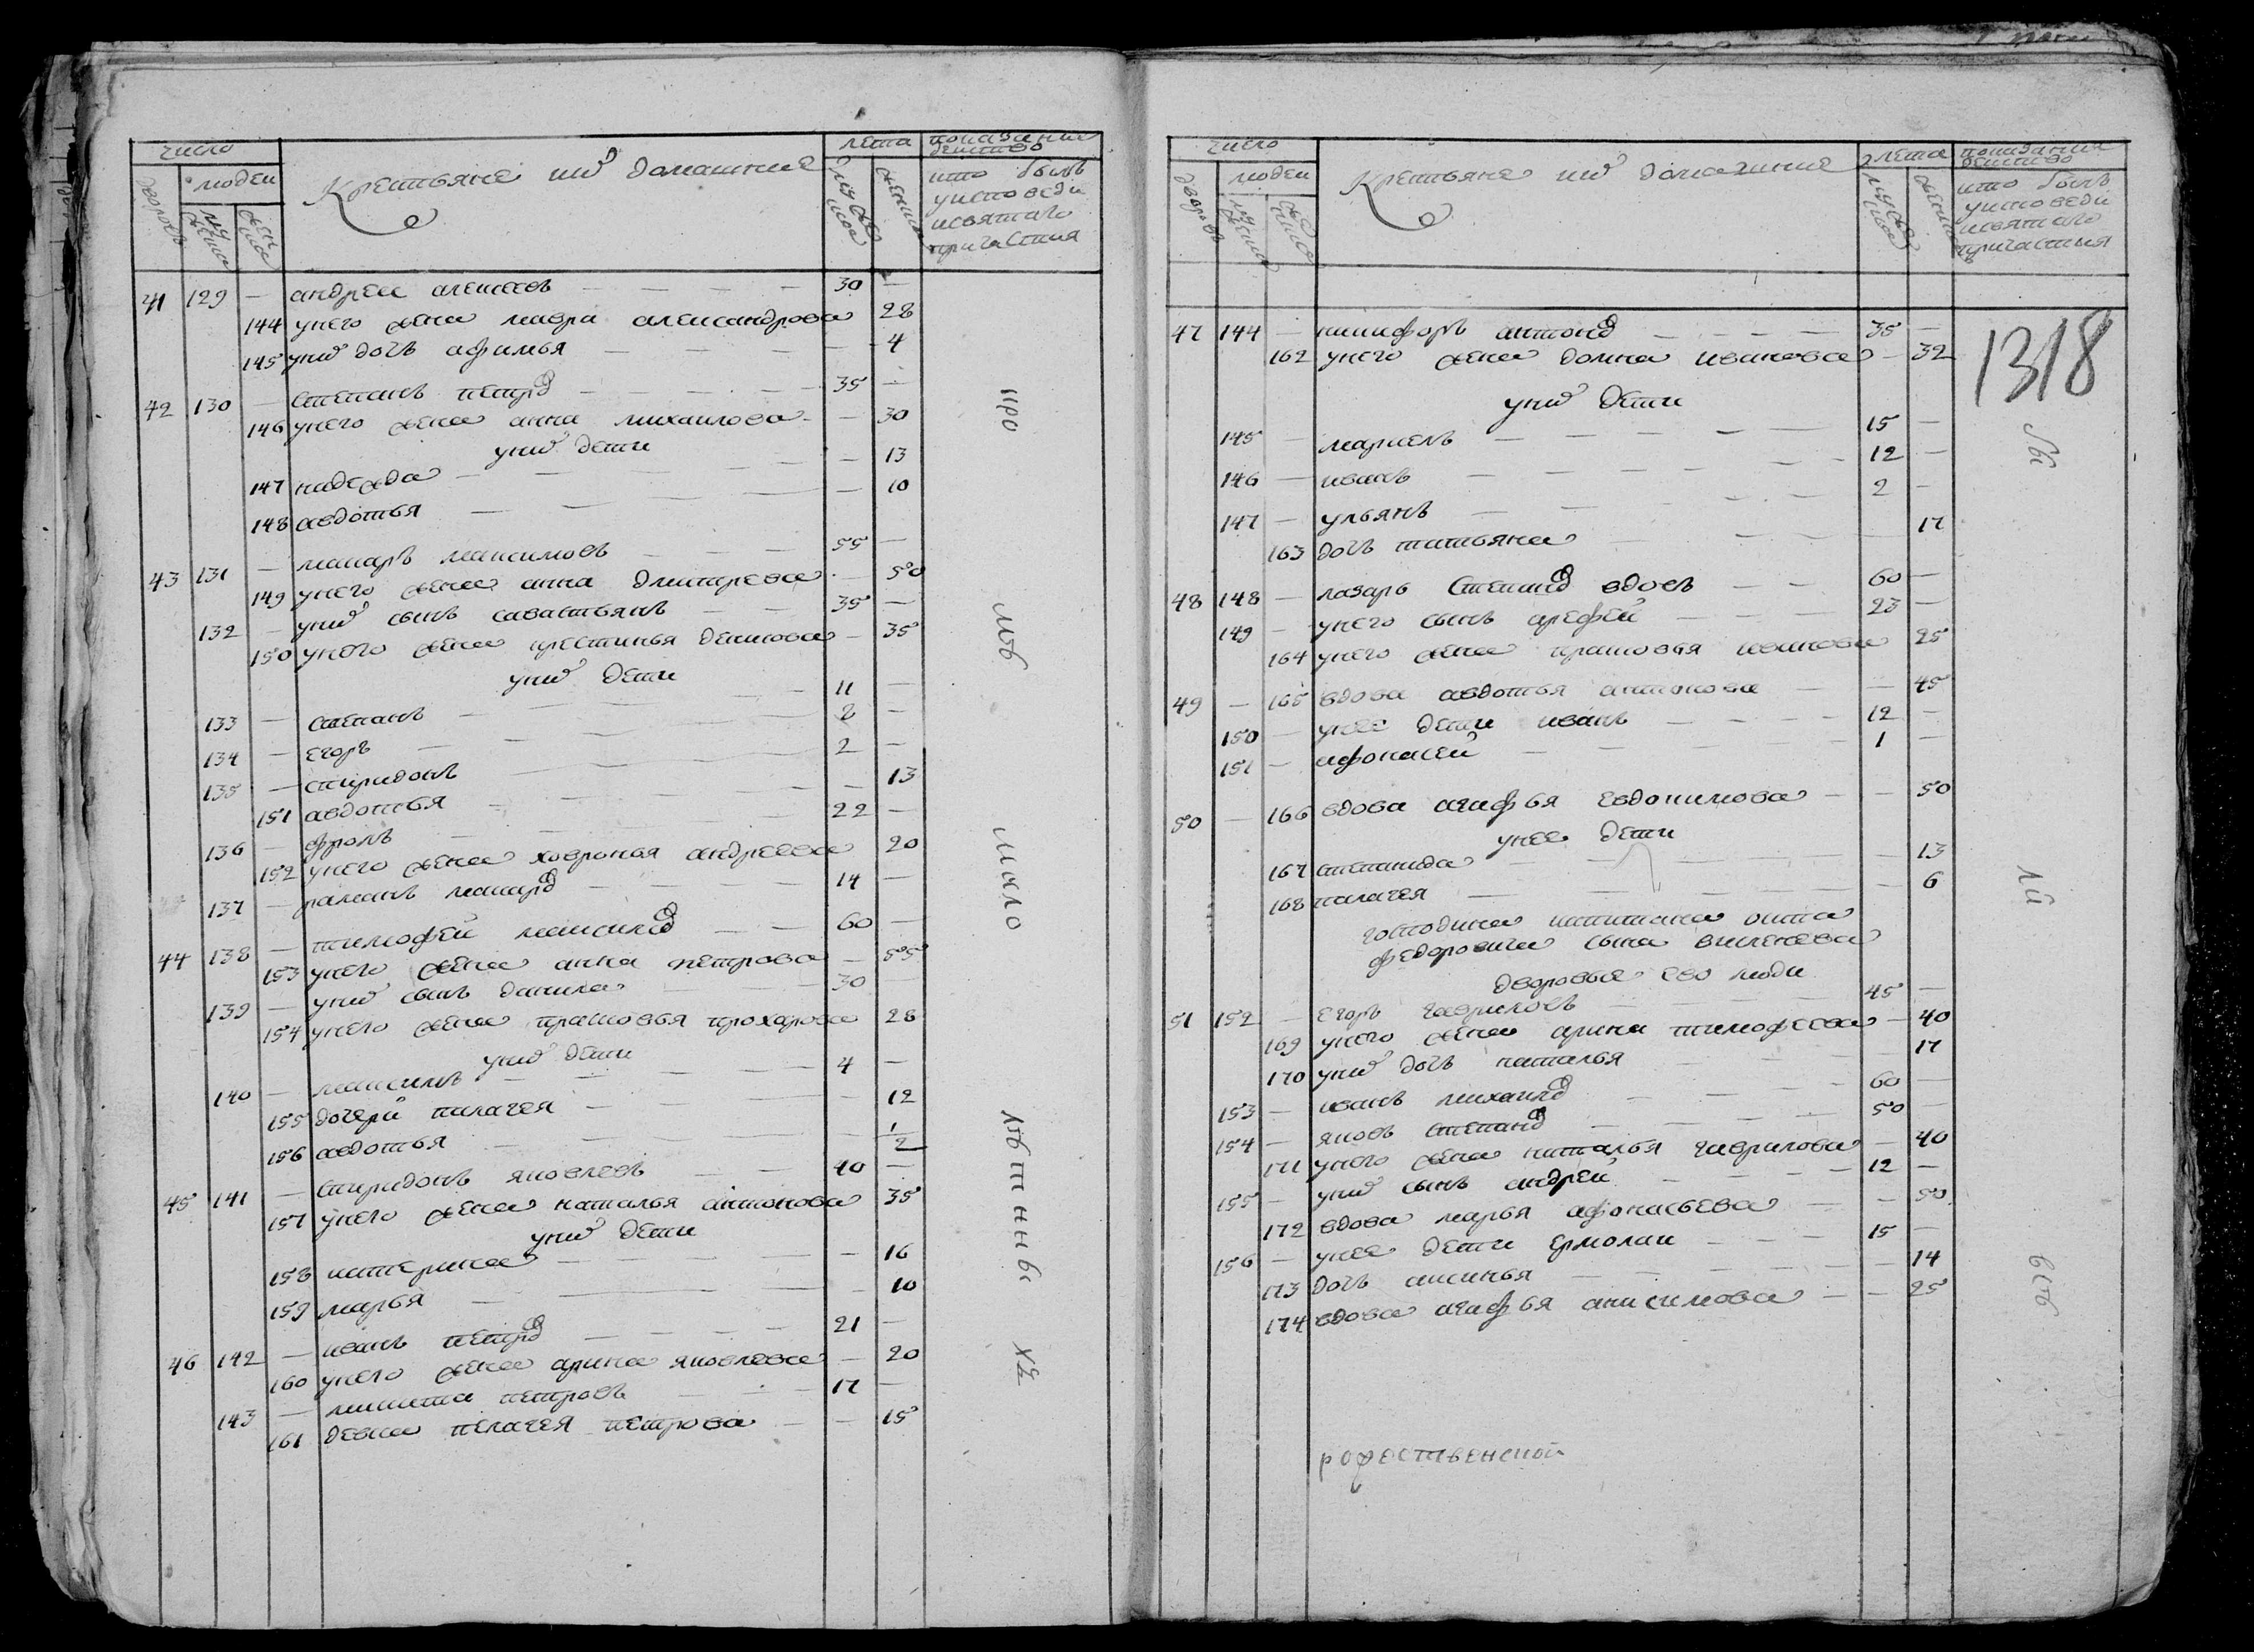 число
людеи
Крестьяне их домашние
лета
показание действо
дворовъ
мужеска
женска
мужеска
женска
кто былъ
у исповеди
и святаго
причастия
41 129 — андреи алексеевъ — — — — 30 —
144 у него жена мавра александрова 28
145 у них дочь афимья — — — — 4
42 130 — степанъ петров — — — — 35 —
146 у него жена анна михаилова — — 30
у них дети
147 надежда — — — — 13
148 авдотья — — — — 10
43 131 — макаръ максимовъ — — — 55 —
149 у него жена анна дмитрева — 50
132 — у них сынъ савастьянъ — — 35 —
150 у него жена крестинья денисова — 35
у них дети
133 — степанъ — — — 11 —
134 — егоръ — — — 8 —
135 — спиридонъ — — — 2 —
151 авдотья — — — 13
136 — фролъ — — — 22 —
152 у него жена ховронья андреева 20
137 — раманъ макаров — — — — 14 —
44 138 — тимофеи максимов — — 60 —
153 у него жена анна петрова — 55
139 — у них сынъ данила — — 30 —
154 у него жена прасковья прохарова 28
у них дети
140 — максимъ — — — — 4 —
155 дочери пилагея — — — — 12
156 авдотья — — — — 1/2
45 141 — спиридонъ яковлевъ — — 40 —
157 у него жена наталья антонова 35
у них дети
158 катерина — — — — 16
159 марья — — — — 10
46 142 — иванъ петров — — — — 21 —
160 у него жена арина яковлева — 20
143 — никита петровъ — — — 17 —
161 девка пелагея петрова — — 15
про
мъ
мало
лѣтны
хъ
число
людеи
Крестьяне их домашние
лета
показания действо
дворовъ
мужеска
женска
мужеска
женска
кто былъ
у исповеди
и святаго
причастия
1318
47 144 — никифоръ антонов — — — — 35 —
162 у него жена домна иванова — 32
у них дети
145 — маркелъ — — — — 15 —
146 — иванъ — — — — 12 —
147 — ульянъ — — — — 2 —
163 дочь татьяна — — — 17
48 148 — лазарь степанов вдовъ — — 60 —
149 — у него сынъ арефей — — 23 —
164 у него жена прасковья иванова 25
49 — 165 вдова авдотья антонова — — 45
150 — у нее дети иванъ — — — 12 —
151 — афонасей — — — 1 —
50 — 166 вдова агафья евдокимова — — 50
у нее дети
167 степанида — — — — 13
168 палагея — — — — 6
господина капитана осипа
федоровича сына
дворовые ево люди
51 152 — егоръ гавриловъ — — — 45 —
169 у него жена арина тимофеева — 40
170 у них дочь наталья — — — 17
153 — иванъ михаилов — — — 60 —
154 — яковъ степанов — — — 50 —
171 у него жена наталья гаврилова — 40
155 — у них сынъ андрей — — — 12 —
172 вдова марья афонасьева — — 50
156 — у нее дети ермолаи — — — 15 —
173 дочь аксинья — — — — 14
174 вдова агафья анисимова — — 25
рожественской
лы
лй
въ